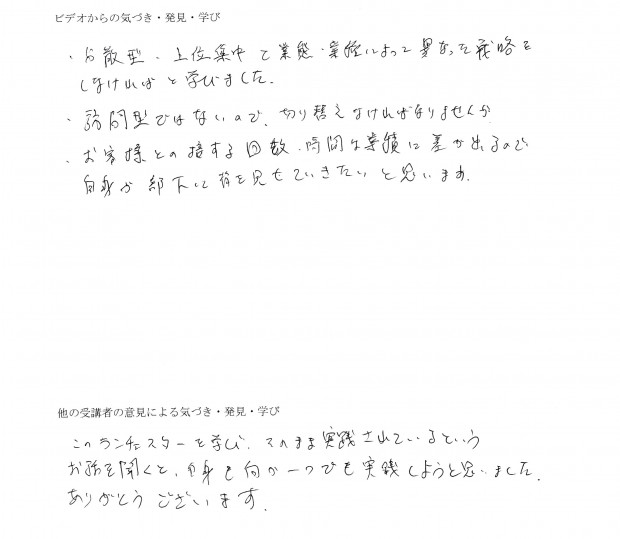 ビデオからの気づき・発見・学び
・分散型・上位集中で業態・業種によって異なった戦略を
しなければと学びました。
・訪問型ではないので、切り替えなければなりませんが
・お客様との接する回数・時間は業績に差が出るので
自身が部下に背を見せていきたいと思います。
他の受講者の意見による気づき・発見・学び
このランチェスターを学び、そのまま実践されているという
お話を聞くと、自身も何か一つでも実践しようと思いました。
ありがとうございます。